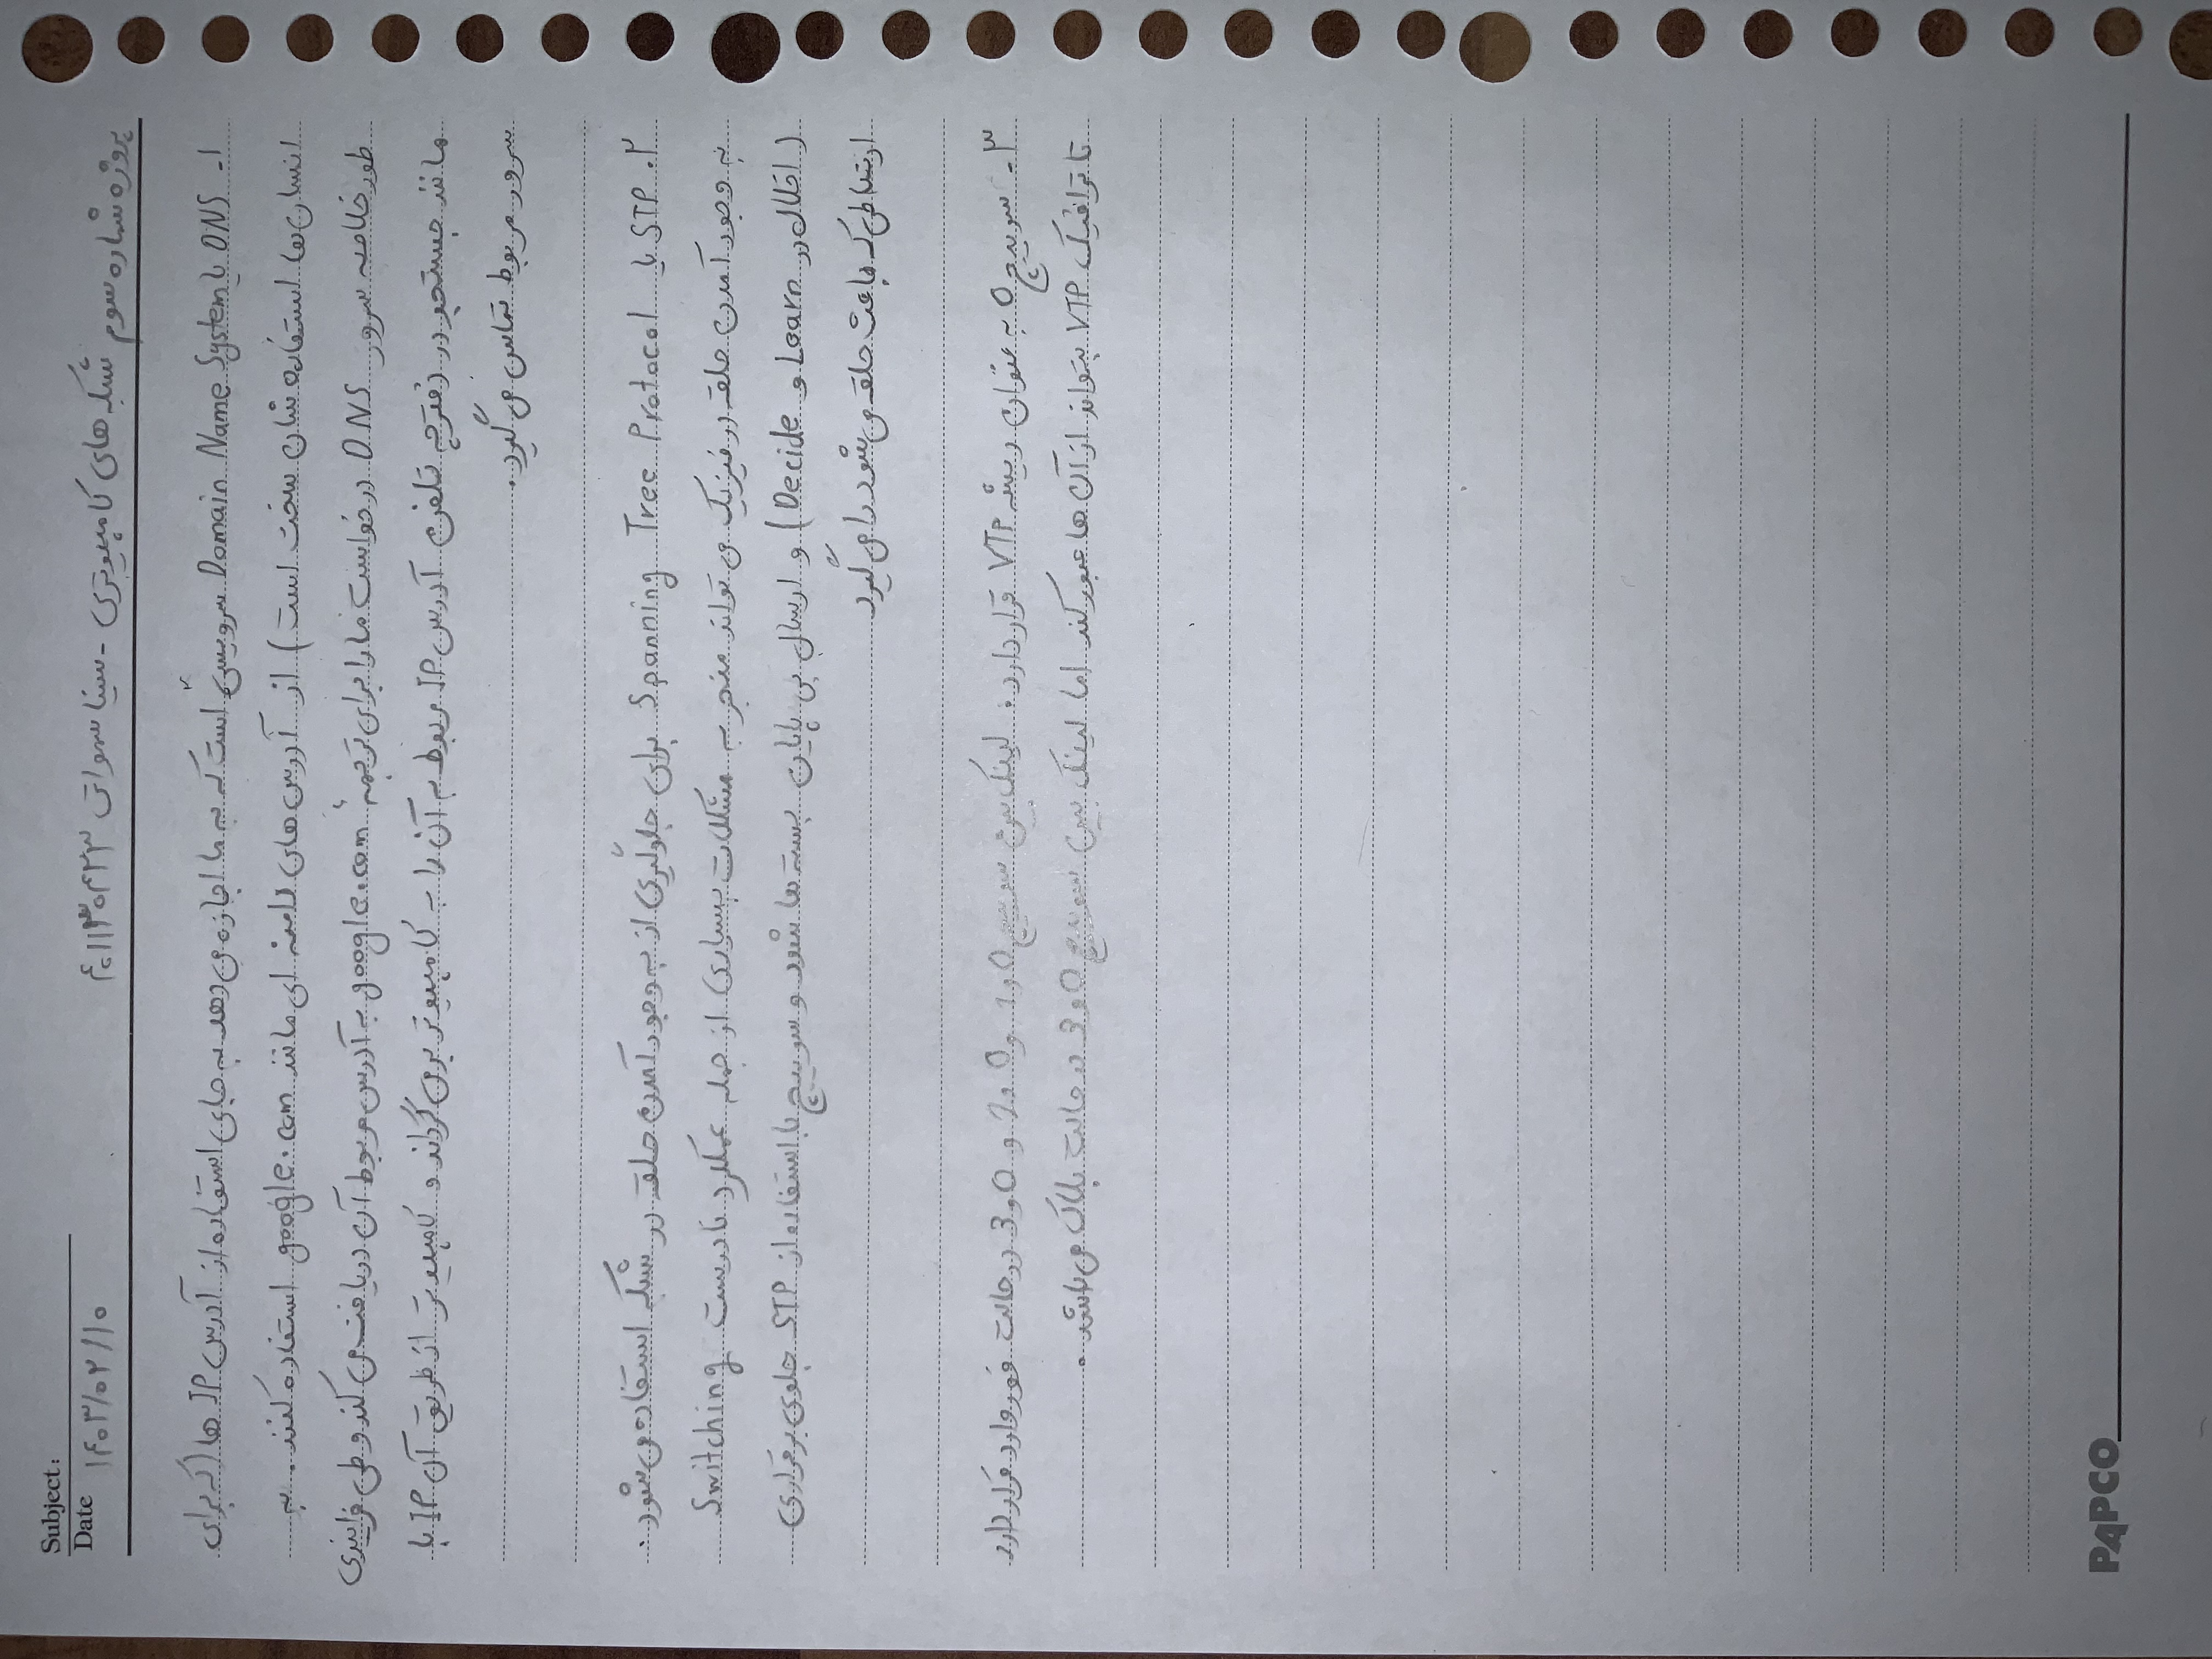 Subject:
Date ۱۴۰۳/۰۲/۱۰
پروژه شماره سوم شبکه های کامپیوتری - سینا سمواتی ۴۰۱۱۳۰۴۲۳
۱- DNS یا Domain Name System سرویسی است که به ما اجازه می دهد به جای استفاده از آدرس IP ها (که برای
انسان ها استفاده شان سخت است) از آدرس های دامنه ای مانند google.com استفاده کنند. به
طور خلاصه سرور DNS درخواست ما را برای ترجمهٔ google.com به آدرس مربوط آن دریافت می کند و طی فرایندی
مانند جستجو در دفترچه تلفن آدرس IP مربوط به آن را به کامپیوتر برمی گرداند و کامپیوتر از طریق آن IP با
سرور مربوط تماس می گیرد.
۲. STP یا Spanning Tree Protocol برای جلوگیری از به وجود آمدن حلقه در شبکه استفاده می شود.
به وجود آمدن حلقه در فیزیک می تواند منجر به مشکلات بسیاری از جمله عملکرد نادرست Switching
(اخلال در Learn و Decide) و ارسال بی پایان بسته ها شود و سوییچ با استفاده از STP جلوی برقراری
ارتباطی که باعث حلقه می شود را می گیرد
۳- سوییچ 0 به عنوان ریشه VTP قرار دارد. لینک بین سوییچ 0 و 1 و 0 و 2 و 0 و 3 در حالت فوروارد قرار دارد
تا ترافیک VTP بتواند از آن ها عبور کند اما لینک بین سوییچ 0 و 3 در حالت بلاک می باشد.
PAPCO